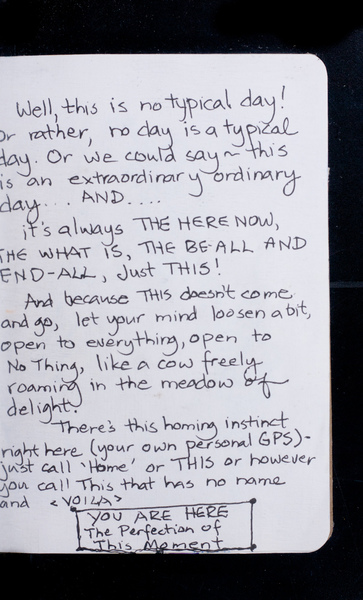 Well, this is no typical day!
Or rather, no day is a typical
day. Or we could say ~ this
is an extraordinary ordinary
day.... AND....
it's always THE HERE NOW,
THE WHAT IS, THE BE-ALL AND
END-ALL, Just THIS!
And because THIS doesn't come
and go, let your mind loosen a bit,
open to everything, open to
No Thing, like a cow freely
roaming in the meadow of
delight.
There's this homing instinct
right here (your own personal GPS)-
just call 'Home' or THIS or however
you call This that has no name
and <VOILA>
YOU ARE HERE
The Perfection of
This Moment